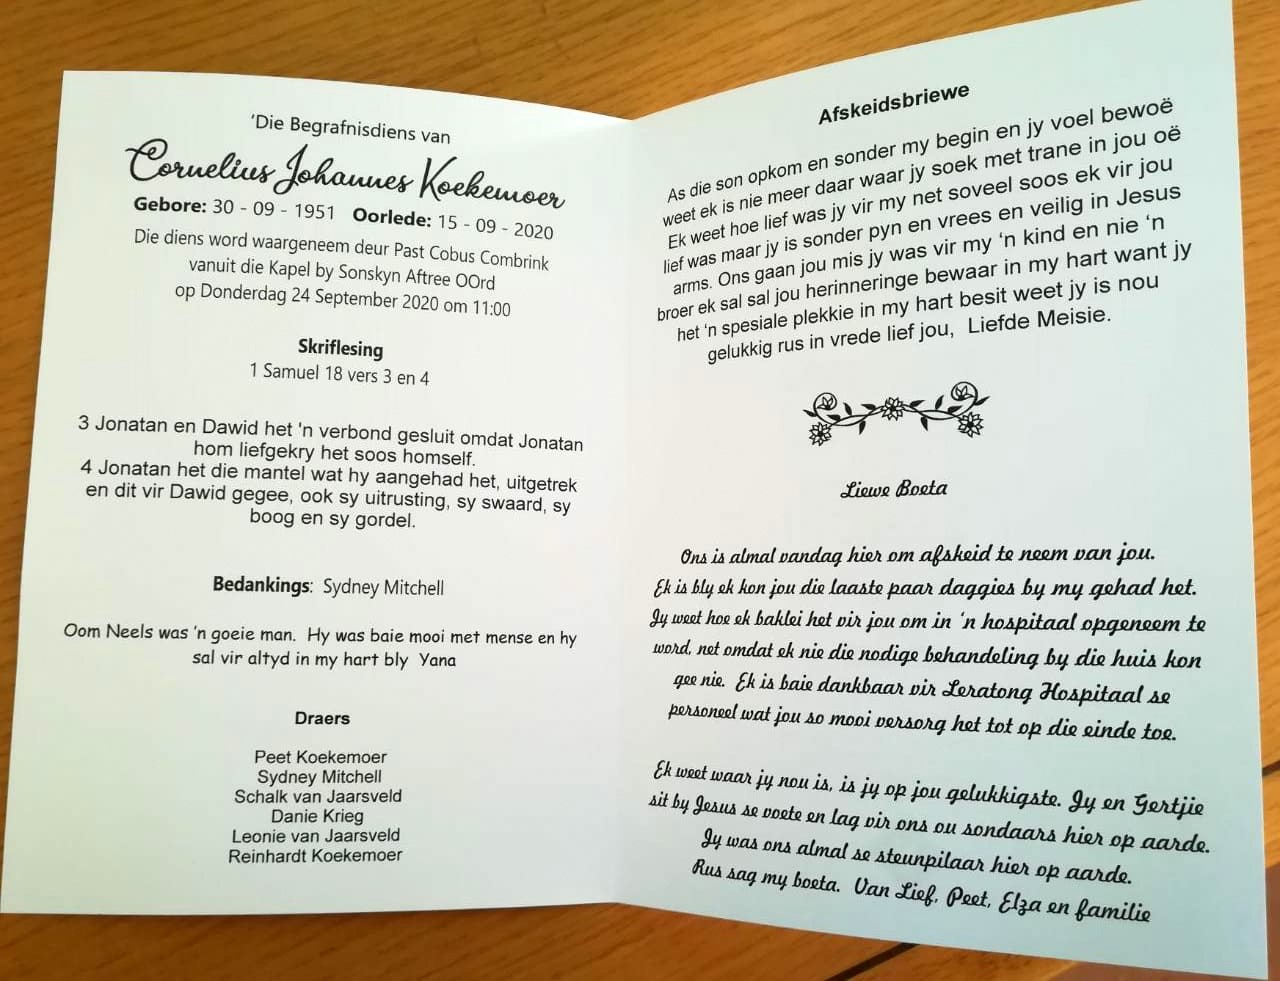 'Die Begrafnisdiens van
Cornelius Johannes Koekemoer
Gebore: 30 - 09 - 1951 Oorlede: 15 - 09 - 2020
Die diens word waargeneem deur Past Cobus Combrink
vanuit die Kapel by Sonskyn Aftree OOrd
op Donderdag 24 September 2020 om 11:00
Skriflesing
1 Samuel 18 vers 3 en 4
3 Jonatan en Dawid het 'n verbond gesluit omdat Jonatan
hom liefgekry het soos homself.
4 Jonatan het die mantel wat hy aangehad het, uitgetrek
en dit vir Dawid gegee, ook sy uitrusting, sy swaard, sy
boog en sy gordel.
Bedankings: Sydney Mitchell
Oom Neels was 'n goeie man. Hy was baie mooi met mense en hy
sal vir altyd in my hart bly Yana
Draers
Peet Koekemoer
Sydney Mitchell
Schalk van Jaarsveld
Danie Krieg
Leonie van Jaarsveld
Reinhardt Koekemoer
Afskeidsbriewe
As die son opkom en sonder my begin en jy voel bewoë
weet ek is nie meer daar waar jy soek met trane in jou oë
Ek weet hoe lief was jy vir my net soveel soos ek vir jou
lief was maar jy is sonder pyn en vrees en veilig in Jesus
arms. Ons gaan jou mis jy was vir my 'n kind en nie 'n
broer ek sal sal jou herinneringe bewaar in my hart want jy
het 'n spesiale plekkie in my hart besit weet jy is nou
gelukkig rus in vrede lief jou, Liefde Meisie.
Liewe Boeta
Ons is almal vandag hier om afskeid te neem van jou.
Ek is bly ek kon jou die laaste paar daggies by my gehad het.
Jy weet hoe ek baklei het vir jou om in 'n hospitaal opgeneem te
word, net omdat ek nie die nodige behandeling by die huis kon
gee nie. Ek is baie dankbaar vir Leratong Hospitaal se
personeel wat jou so mooi versorg het tot op die einde toe.
Ek weet waar jy nou is, is jy op jou gelukkigste. Jy en Gertjie
sit by Jesus se voete en lag vir ons ou sondaars hier op aarde.
Jy was ons almal se steunpilaar hier op aarde.
Rus sag my boeta. Van Lief, Peet, Elza en familie